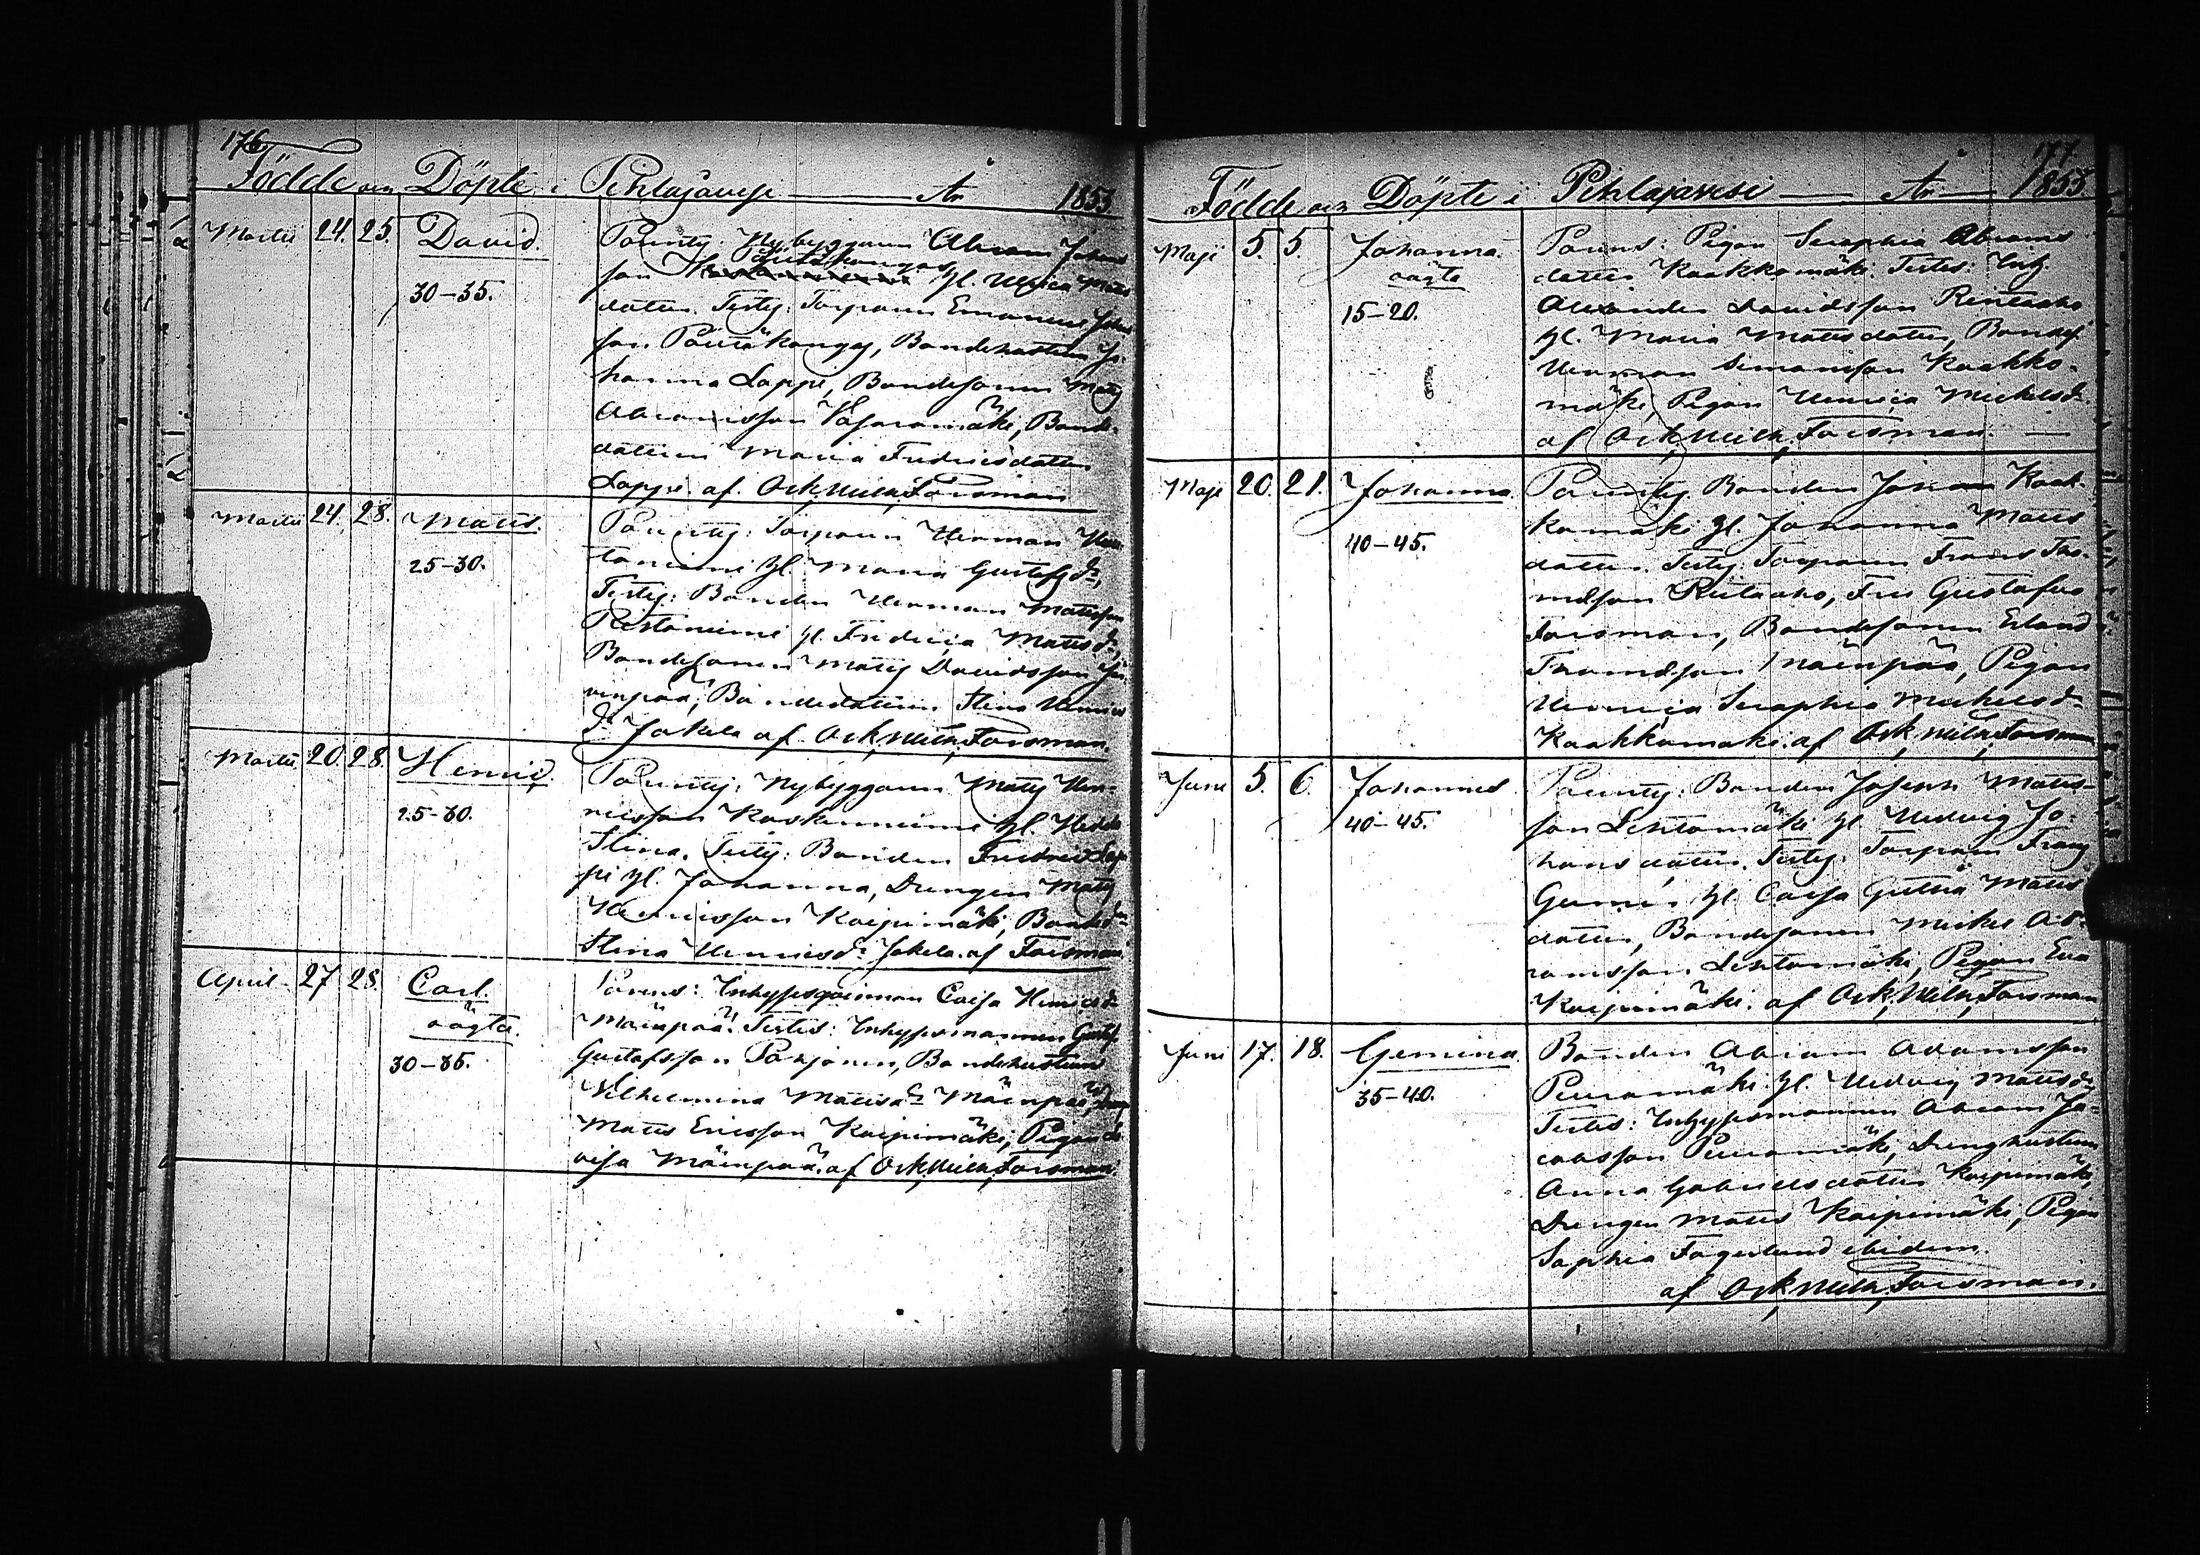 176
Födde och Döpte i Pihlajavesi År 1853.
Martii 24. 25. David. 30-35.
Parentes: Nybyggaren Abram Johans
son Pöntökangas hl. Ulrica Matts
dotter. Testes: Torparen Emanuel Johans
son Pöntökangas, Bondehustrun Jo
hanna Lappi, Bondesonen Matts
Abramsson Vasaramäki, Bond-
dottern Maria Fredricsdotter
Lappi. af Ork, Wilh, Forsman
Martii 24. 28. Matts. 25-30.
Parentes: Torparen Herman
hl. Maria Gustafsdr,
Testes: Bonden Herman Mattsson
Ristaniemi hl. Fredrica Mattsdr,
Bondesonen Matts Davidsson
Bondedottern Stina Henrics
dr Jokela af Ork, Wilh, Forsman.
Martii 20. 28. Henric. 25-30.
Parentes: Nybyggaren Matts Hen-
ricsson Koskinniemi hl. Hedda
Stina. Testes: Bonden Fredric Lap
pi hl. Johanna, Drengen Matts
Henricsson Kaipimäki,
Stina Henricsdr Jokela. af Forsman
April 27. 28. Carl. oägta. 30-35.
Parens: Inhyseqvinnan Caisa Henricsdr
Mäenpää. Testes: Inhysesmannen Gustaf
Gustafsson Bondehustrun
Vilhelmina Mattsdr Mäenpää,
Matts Ericsson Kaipimäki, Pigan
Mäenpää. af Ork, Wilh, Forsman.
177
Födde och Döpte i Pihlajavesi År 1853.
Maji 5. 5. Johanna. oägta 15-20.
Parens: Pigan Seraphia Abrams
dotter Kaakkomäki. Testes: Inh.
Alexander Davidsson Rintaaho
hl. Maria Mattsdotter,
Herman Simonsson Kaakko-
mäki, Pigan Henrica Michelsdr.
af Ork, Wilh, Forsman.
Maji 20. 21. Johanna. 40-45.
Parentes: Bonden Johan Kaak-
komäki hl. Johanna Matts
dotter. Testes: Torparen Frans Tho-
masson Riitaaho, Fru Gustafva
Forsman, Bondesonen Erland
Thomasson Mäenpää, Pigan
Henrica Seraphia Michelsdr
Kaakkomäki. af Ork, Wilh, Forsman
Juni 5. 6. Johannes 40-45.
Parentes: Bonden Joseph Matts-
son Lehtomäki hl Hedvig Jo-
hansdotter. Testes: Torparen Frans
hl Caisa Matts
dotter, Bondesonen Mickel Ab-
ramsson Lehtomäki, Pigan Eva
Kaipimäki. af Ork, Wilh, Forsman
Juni 17. 18. Gemina. 35-40.
Bonden Abram Adamsson
Peuramäki. hl. Hedvig Mattsdr
Testes: Inhysesmannen Abram Ja-
cobsson Peuramäki, Drenghustrun
Anna Gabrielsdotter Kaipimäki,
Drengen Matts Kaipimäki, Pigan
Sophia Fagerlund ibidem.
af Ork, Wilh, Forsman.